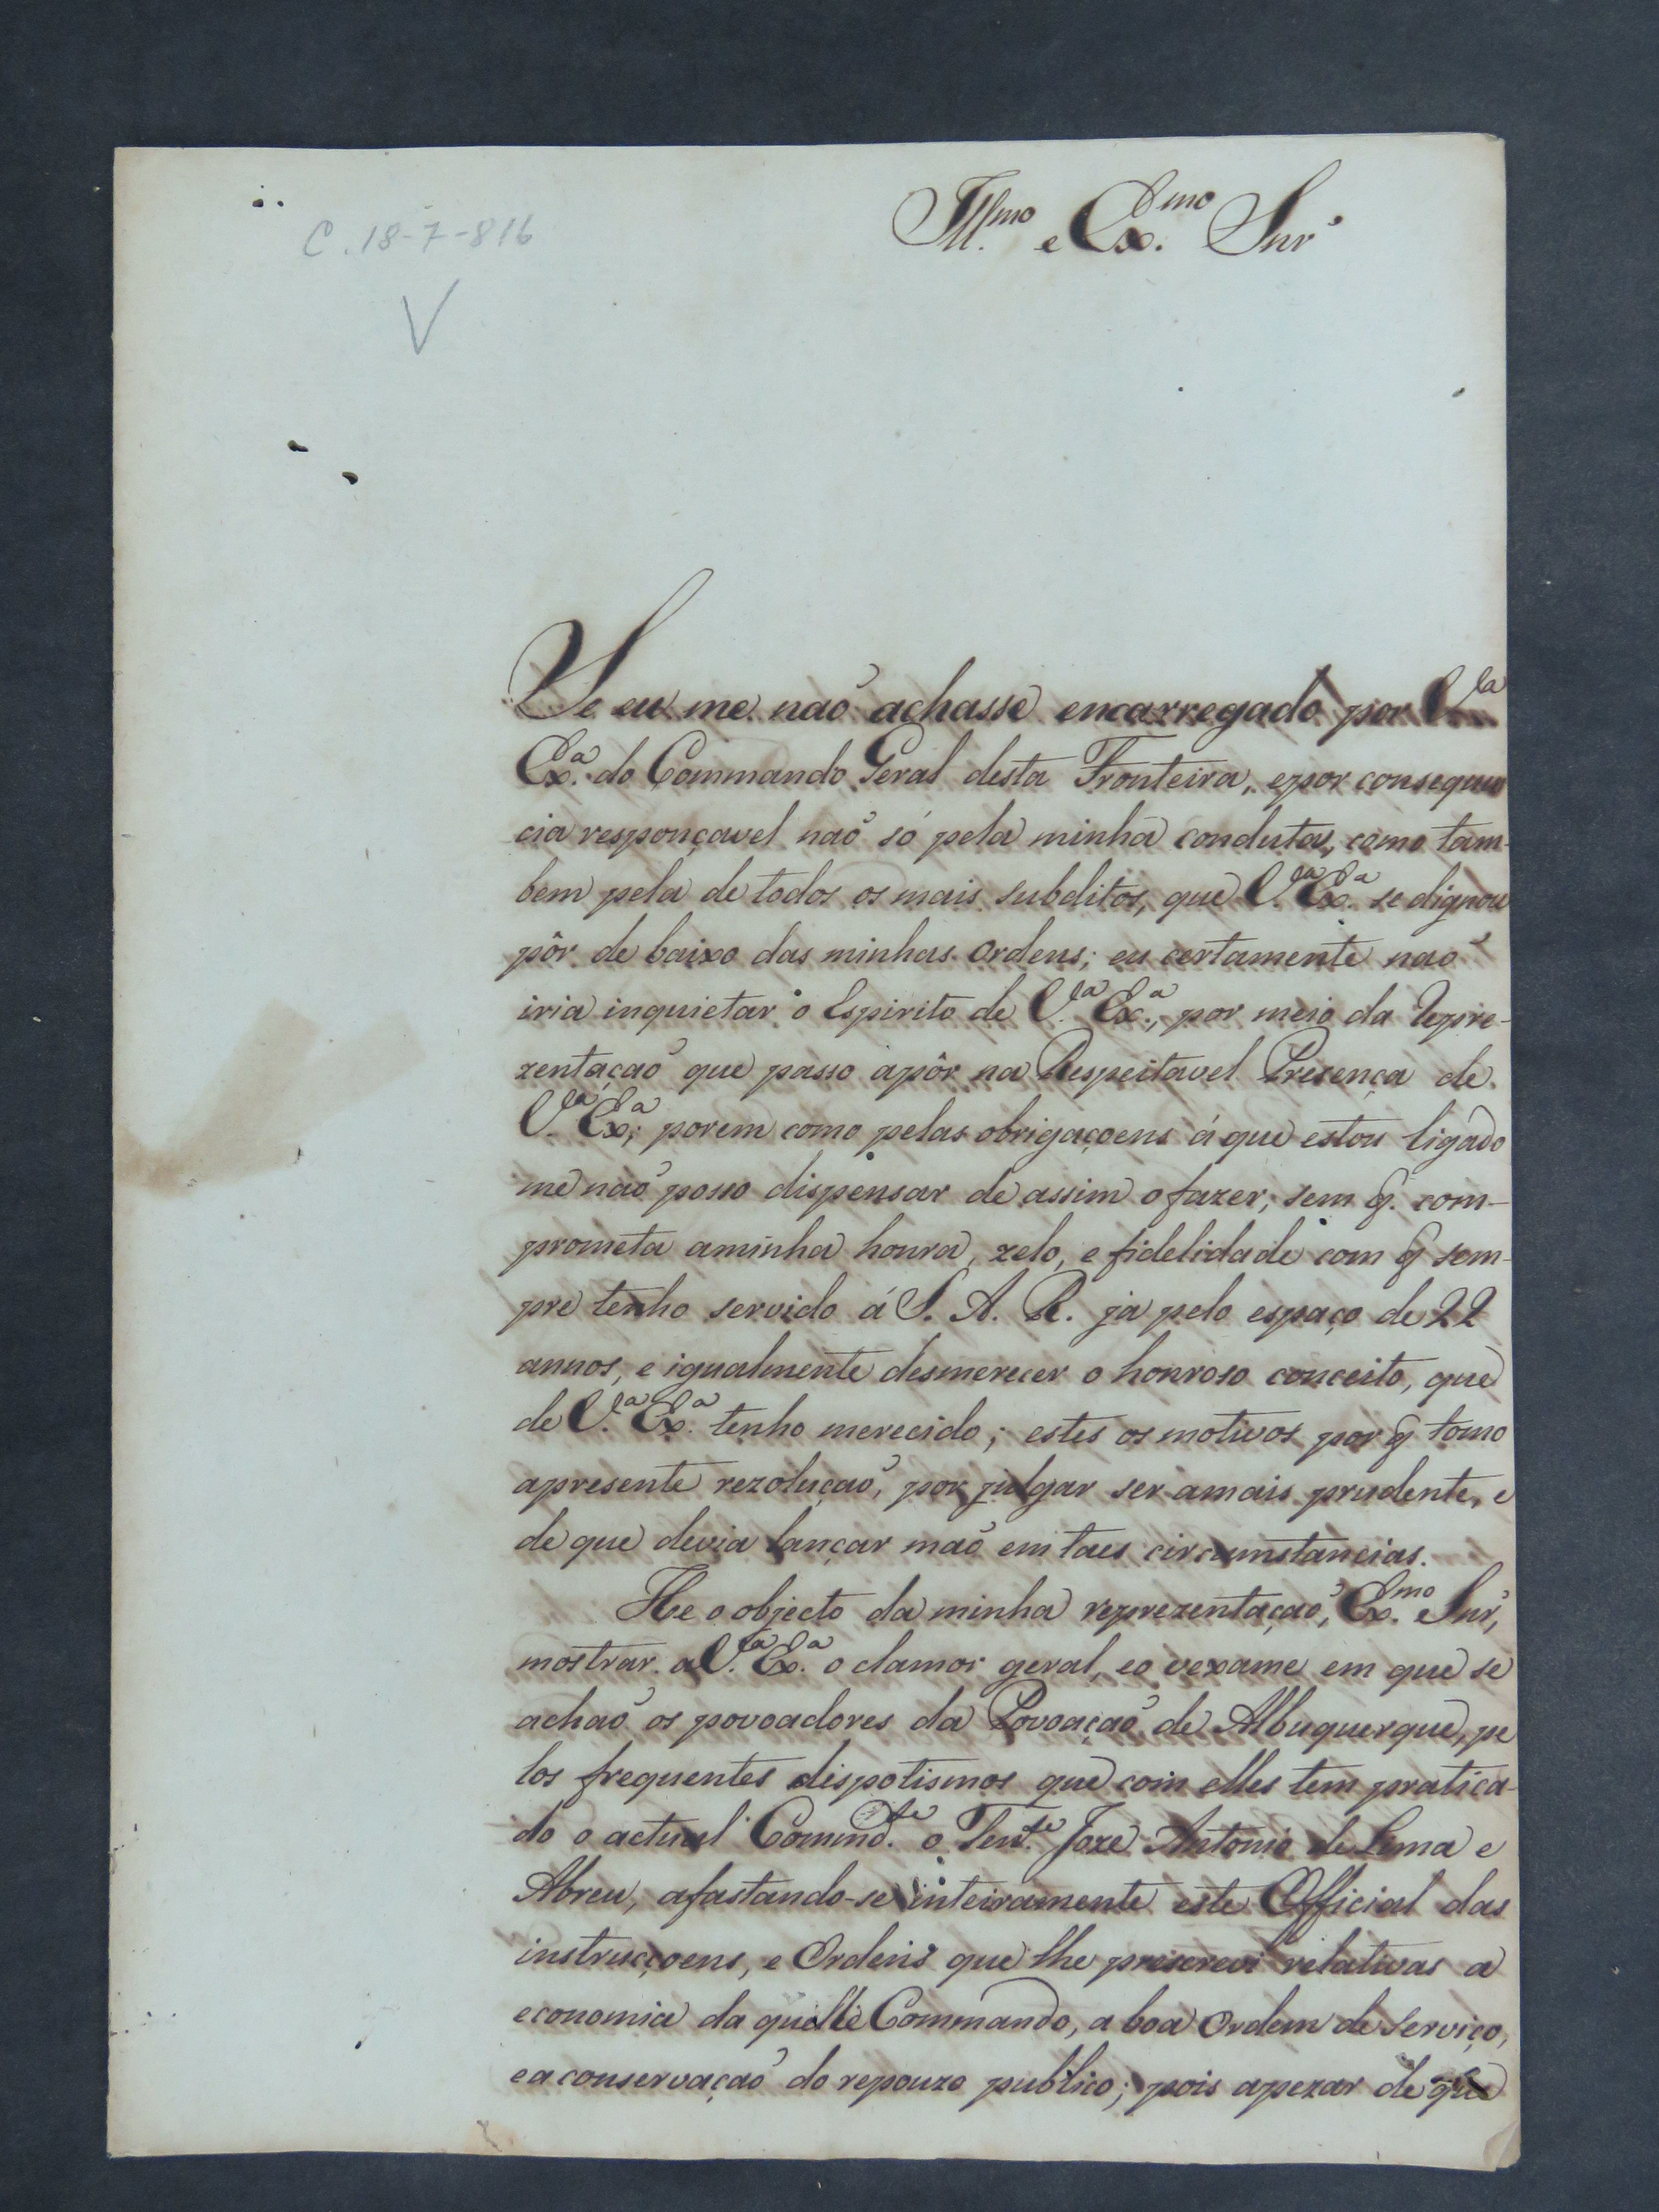 C. 18-7-816
V
Ill.mo e Ex.mo Snr'
Se eu me naõ achasse encarregado por V.la
Ex.a do Commando Geral desta Fronteira, epor consequen
cia responçavel naõ só pela minha conduta, como tam-
bem pela de todos os mais subditos, que V.la Ex.a se dignou
pôr de baixo das minhas Ordens; eu certamente naõ
iria inquietar o Espirito de V.la Ex.a, por meio da Repre-
zentaçaõ que passo apôr na Respeitavel Presença de
V.la Ex.a; porem como pelas obrigaçoens á que estou ligado
me naõ posso dispensar de assim o fazer, sem q. com-
prometa aminha honra, zelo, e fidelidade com q sem-
pre tenho servido á S. A. R. ja pelo espaço de 22
annos, e igualmente desmerecer o honroso conceito, que
de V.la Ex.a tenho merecido; estes os motivos por q tomo
apresente rezoluçaõ, por julgar ser amais prudente, e
de que devia lançar maõ em taes circumstancias.
He o objecto da minha reprezentaçaõ, Ex.mo Snr',
mostrar a V.la Ex.a o clamor geral, eo vexame em que se
achaõ os povoadores da Povoaçaõ de Albuquerque, pe
los frequentes dispotismos que com elles tem pratica-
do o actual Commd.te o Ten.te Joze Antonio de Lima e
Abreu, afastando-se inteiramente este Official das
instrucçoens, e Ordens que lhe prescrevi relativas a
economia da quelle Commando, a boa Ordem de Serviço,
ea conservaçaõ do repouzo publico; pois apezar de que